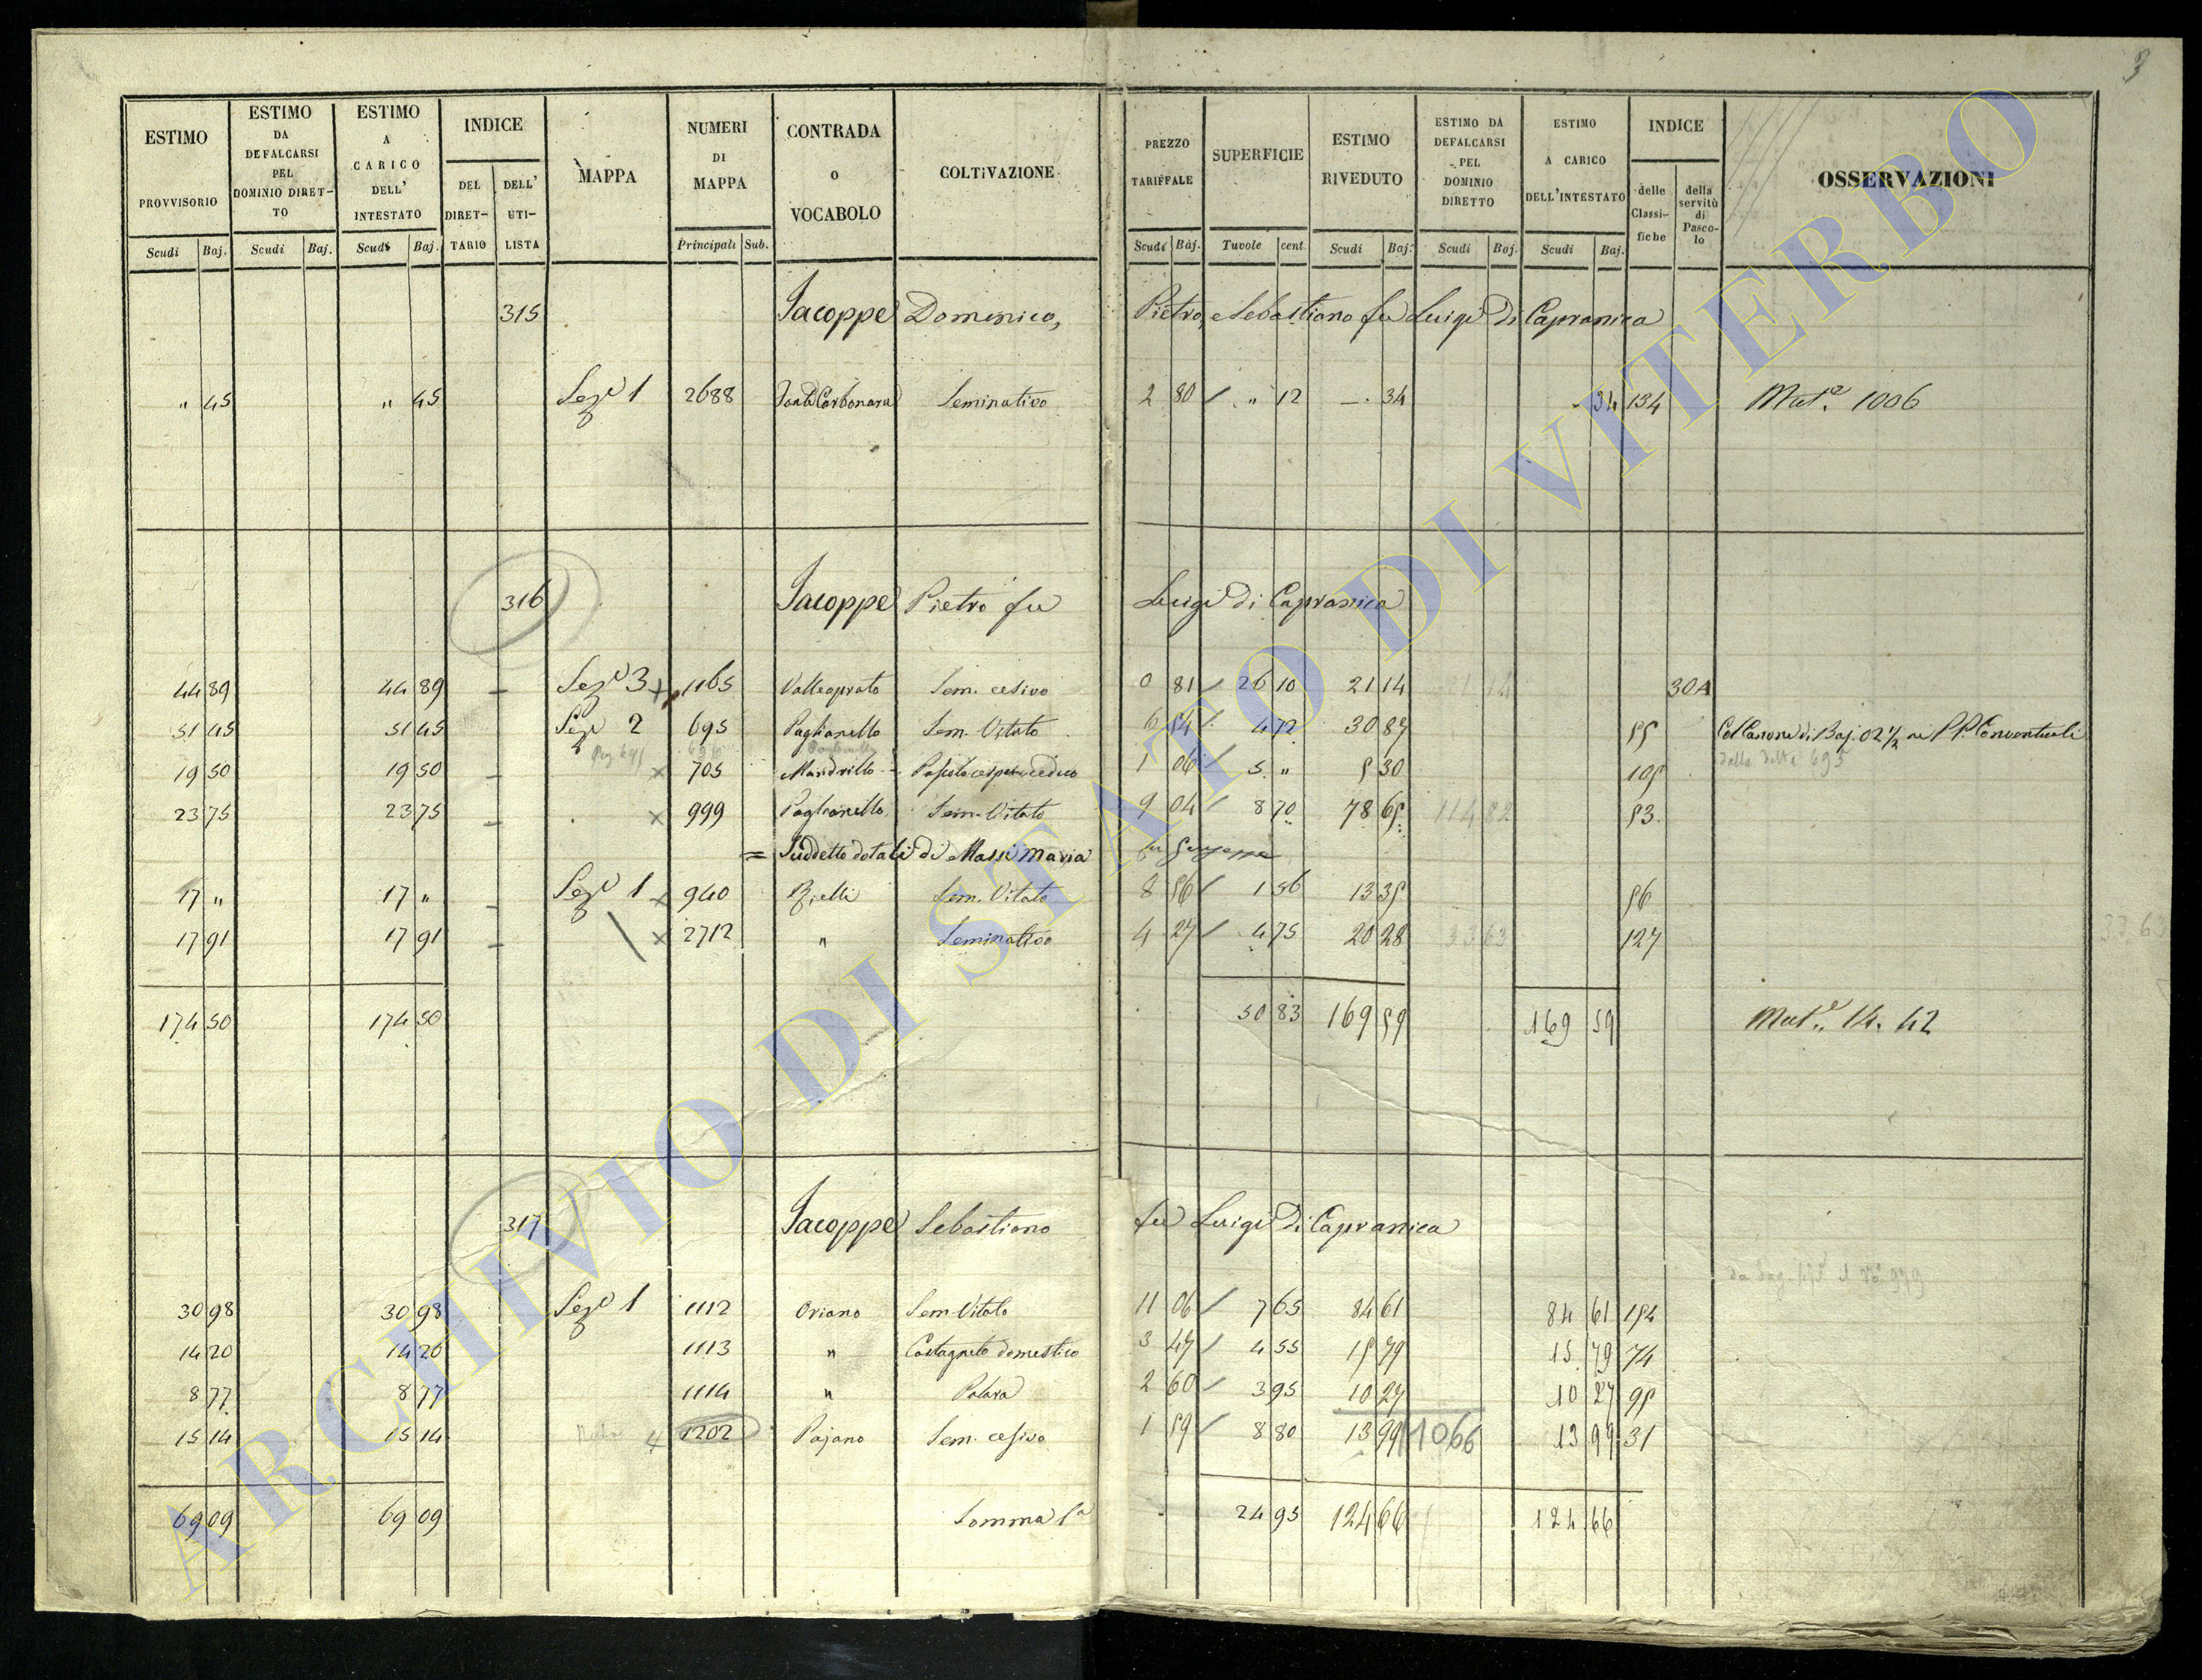 3
ESTIMO PROVVISORIO
ESTIMO DA DEFALCARSI PEL DOMINIO DIRETTO
ESTIMO A CARICO DELL' INTESTATO
INDICE
DEL DIRETTARIO
DELL' UTILISTA
MAPPA
NUMERI DI MAPPA
CONTRADA O VOCABOLO
COLTIVAZIONE
PREZZO TARIFFALE
SUPERFICIE
ESTIMO RIVEDUTO
ESTIMO DA DEFALCARSI PEL DOMINIO DIRETTO
ESTIMO A CARICO DELL'INTESTATO
INDICE
delle Classifiche
della servitù di Pascolo
OSSERVAZIONI
Scudi Baj. Scudi Baj. Scudi Baj. Principali Sub. Scudi Baj. Tavole cent. Scudi Baj. Scudi Baj. Scudi Baj.
315 Jacoppe Domenico, Pietro, e Sebastiano fu Luigi di Capranica
" 45 " 45 Sez.e 1 2688 Carbonara Seminativo 2 80 " 12 — 34 - 34 134 Mut.e 1006
316 Jacoppe Pietro fu Luigi di Capranica
44 89 44 89 – Sez.e 3 1165 Valleprato Sem. cesivo 0 81 26 10 21 14 30A
51 45 51 45 Sez.e 2 695 Paglianello Sem. Vitato 6 54 4 72 30 87 55 Col Canone di Baj. 02 1/2 ai PP. Conventuali
della detta 695
19 50 19 50 – x 705 Mandrillo Pascolo cespu. ceduo 1 06 5 " 5 30 105
23 75 23 75 – x 999 Paglianello Sem. Vitato 9 04 8 70 78 65 114 82 53
= Suddetto dotali di Massi Maria fu Giuseppe
17 " 17 " – Sez.e 1 x 940 Sem. Vitato 8 56 1 56 13 35 56
17 91 17 91 – x 2712 " Seminativo 4 27 4 75 20 28 33 63 127
33 63
174 50 174 50 50 83 169 59 169 59 Mut.e 14. 42
317 Jacoppe Sebastiano fu Luigi di Capranica
30 98 30 98 Sez.e 1 1112 Oriano Sem. Vitato 11 06 7 65 84 61 84 61 154
14 20 14 20 1113 " Castagneto domestico 3 47 4 55 15 79 15 79 74
8 77 8 77 1114 " 2 60 3 95 10 27 10 27 95
15 14 15 14 1202 Pajano Sem. cesivo 1 59 8 80 13 99 1066 13 99 31
69 09 69 09 Somma 24 95 124 66 124 66
ARCHIVIO DI STATO DI VITERBO